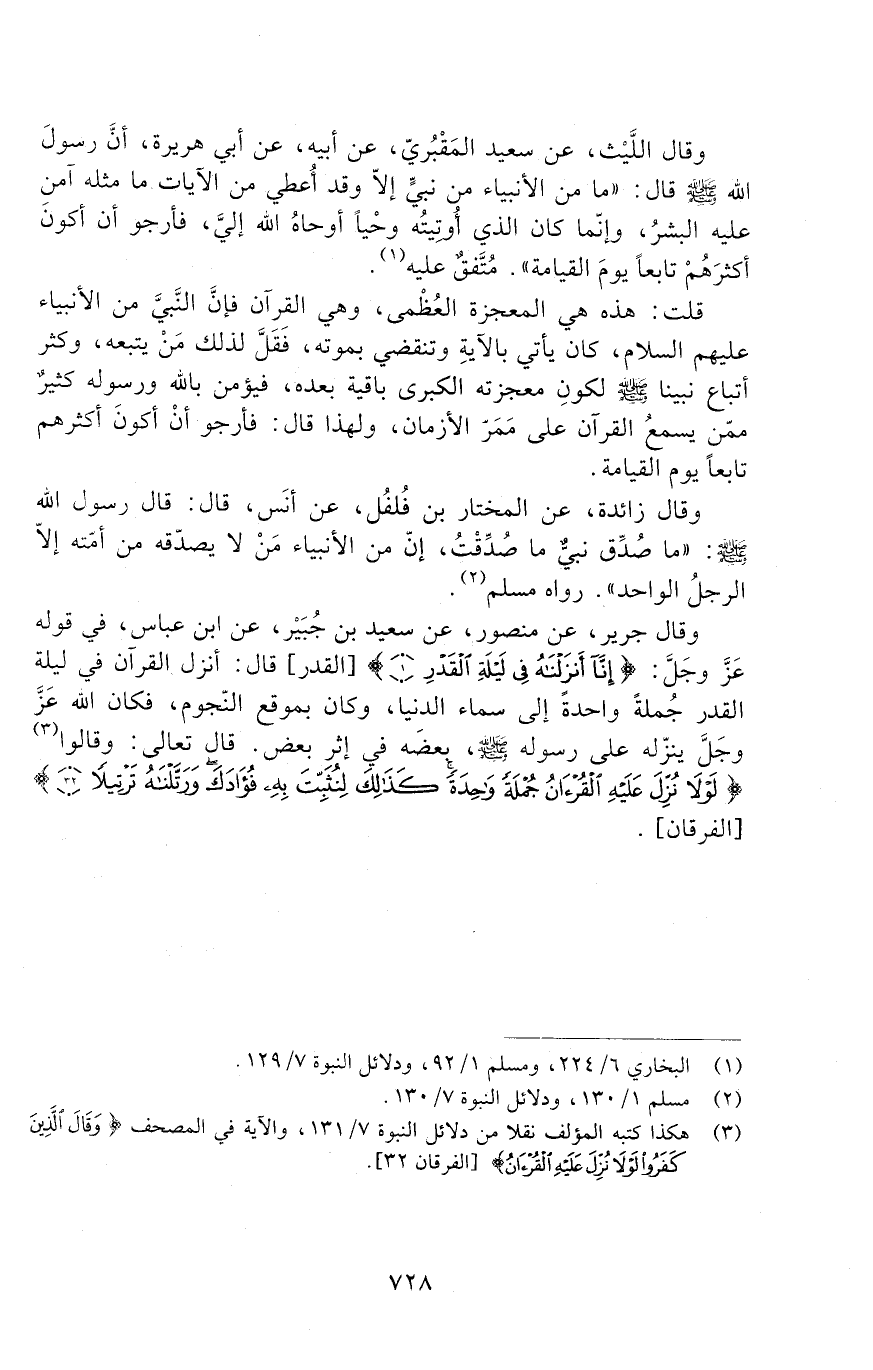 وقال اللَّيْث، عن سعيد المَقْبُريّ، عن أبيه، عن أبي هريرة، أنَّ رسولَ
الله ﷺ قال: «ما من الأنبياء من نبيٍّ إلاّ وقد أُعطي من الآيات ما مثله آمن
عليه البشرُ، وإنّما كان الذي أُوتِيتُه وحْياً أوحاهُ الله إليَّ، فأرجو أن أكونَ
أكثرَهُمْ تابعاً يومَ القيامة». مُتَّفقٌ عليه(١).
قلت: هذه هي المعجزة العُظْمى، وهي القرآن فإنَّ النَّبيَّ من الأنبياء
عليهم السلام، كان يأتي بالآيةِ وتنقضي بموته، فَقَلَّ لذلك مَنْ يتبعه، وكثر
أتباع نبينا ﷺ لكونِ معجزته الكبرى باقية بعده، فيؤمن بالله ورسوله كثيرٌ
ممّن يسمعُ القرآن على مَمَرّ الأزمان، ولهذا قال: فأرجو أنْ أكونَ أكثرهم
تابعاً يوم القيامة.
وقال زائدة، عن المختار بن فُلفُل، عن أنَس، قال: قال رسول الله
ﷺ: «ما صُدِّق نبيٌّ ما صُدِّقْتُ، إنّ من الأنبياء مَنْ لا يصدّقه من أمّته إلاّ
الرجلُ الواحد». رواه مسلم(٢).
وقال جرير، عن منصور، عن سعيد بن جُبَيْر، عن ابن عباس، في قوله
عَزَّ وجَلَّ: ﴿إِنَّآ أَنزَلْنَٰهُ فِى لَيْلَةِ ٱلْقَدْرِ ۝١﴾ [القدر] قال: أنزل القرآن في ليلة
القدر جُملةً واحدةً إلى سماء الدنيا، وكان بموقع النّجوم، فكان الله عَزَّ
وجَلَّ ينزّله على رسوله ﷺ، بعضَه في إثر بعض. قال تعالى: وقالوا(٣)
﴿لَوْلَا نُزِّلَ عَلَيْهِ ٱلْقُرْءَانُ جُمْلَةً وَٰحِدَةً ۚ كَذَٰلِكَ لِنُثَبِّتَ بِهِۦ فُؤَادَكَ ۖ وَرَتَّلْنَٰهُ تَرْتِيلًا ۝٣٢﴾
[الفرقان].
(١) البخاري ٦/ ٢٢٤، ومسلم ١/ ٩٢، ودلائل النبوة ٧/ ١٢٩.
(٢) مسلم ١/ ١٣٠، ودلائل النبوة ٧/ ١٣٠.
(٣) هكذا كتبه المؤلف نقلا من دلائل النبوة ٧/ ١٣١، والآية في المصحف ﴿وَقَالَ ٱلَّذِينَ
كَفَرُوا۟ لَوْلَا نُزِّلَ عَلَيْهِ ٱلْقُرْءَانُ﴾ [الفرقان ٣٢].
٧٢٨